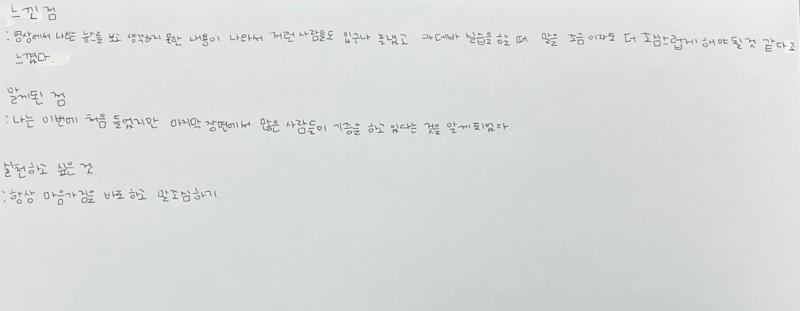 느낀 점
: 영상에서 나온 뉴스를 보고 생각하지 못한 내용이 나와서 저런 사람들도 있구나 놀랬고 카데바 실습을 할 때 말을 조금이라도 더 조심스럽게 해야 될 것 같다고
느꼈다.
알게된 점
: 나는 이번에 처음 들었지만 마지막 장면에서 많은 사람들이 기증을 하고 있다는 것을 알게되었다.
실천하고 싶은 것
: 항상 마음가짐을 바로하고 말조심하기.